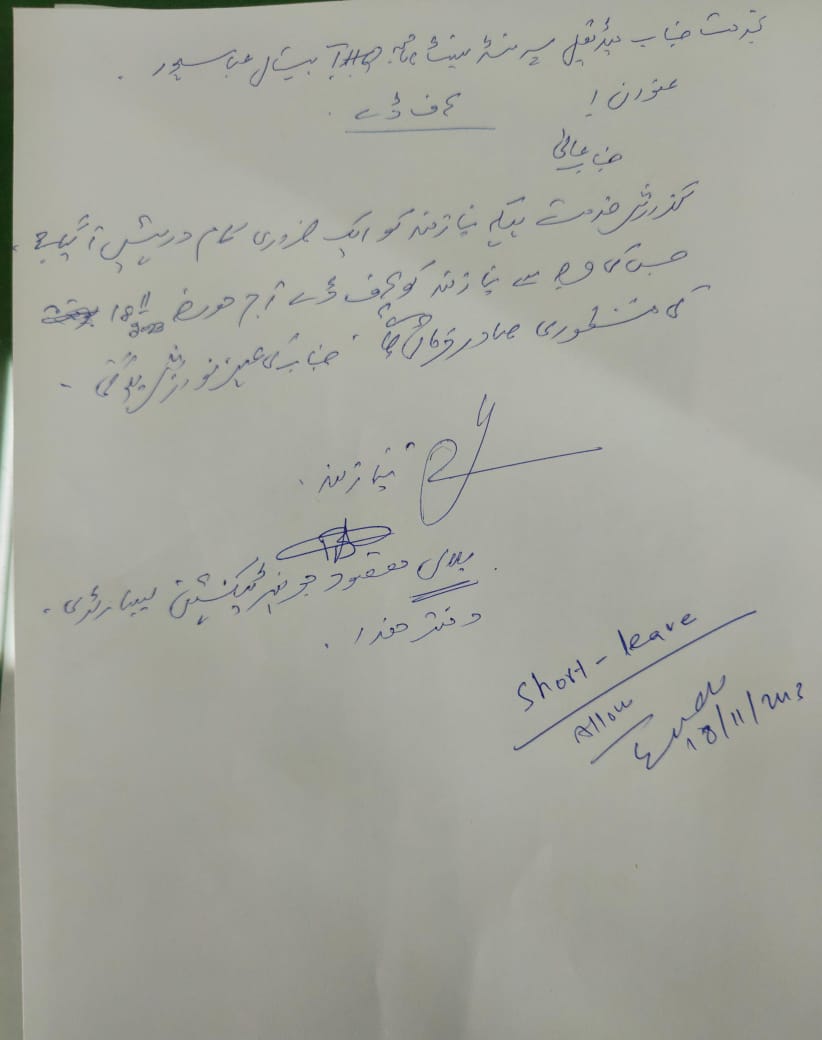 بخدمت جناب میڈیکل سپرنٹنڈنٹ ہسپتال عباسپور .
عنوان !
ہاف ڈے .
جناب عالی
گذارش خدمت ہیکہ نیازمند کو ایک ضروری کام درپیش آ گیا ہے .
جس کی وجہ سے نیازمند کو ہاف ڈے آج مورخہ 18 11
کی منظوری صادر فرمائی جناب کی عین نوازش ہو گی -
نیازمند .
مقصود جونیئر ٹیکنیشن لیبارٹری .
دفتر ھذا .
Short-leave
Allow
18/11/2023